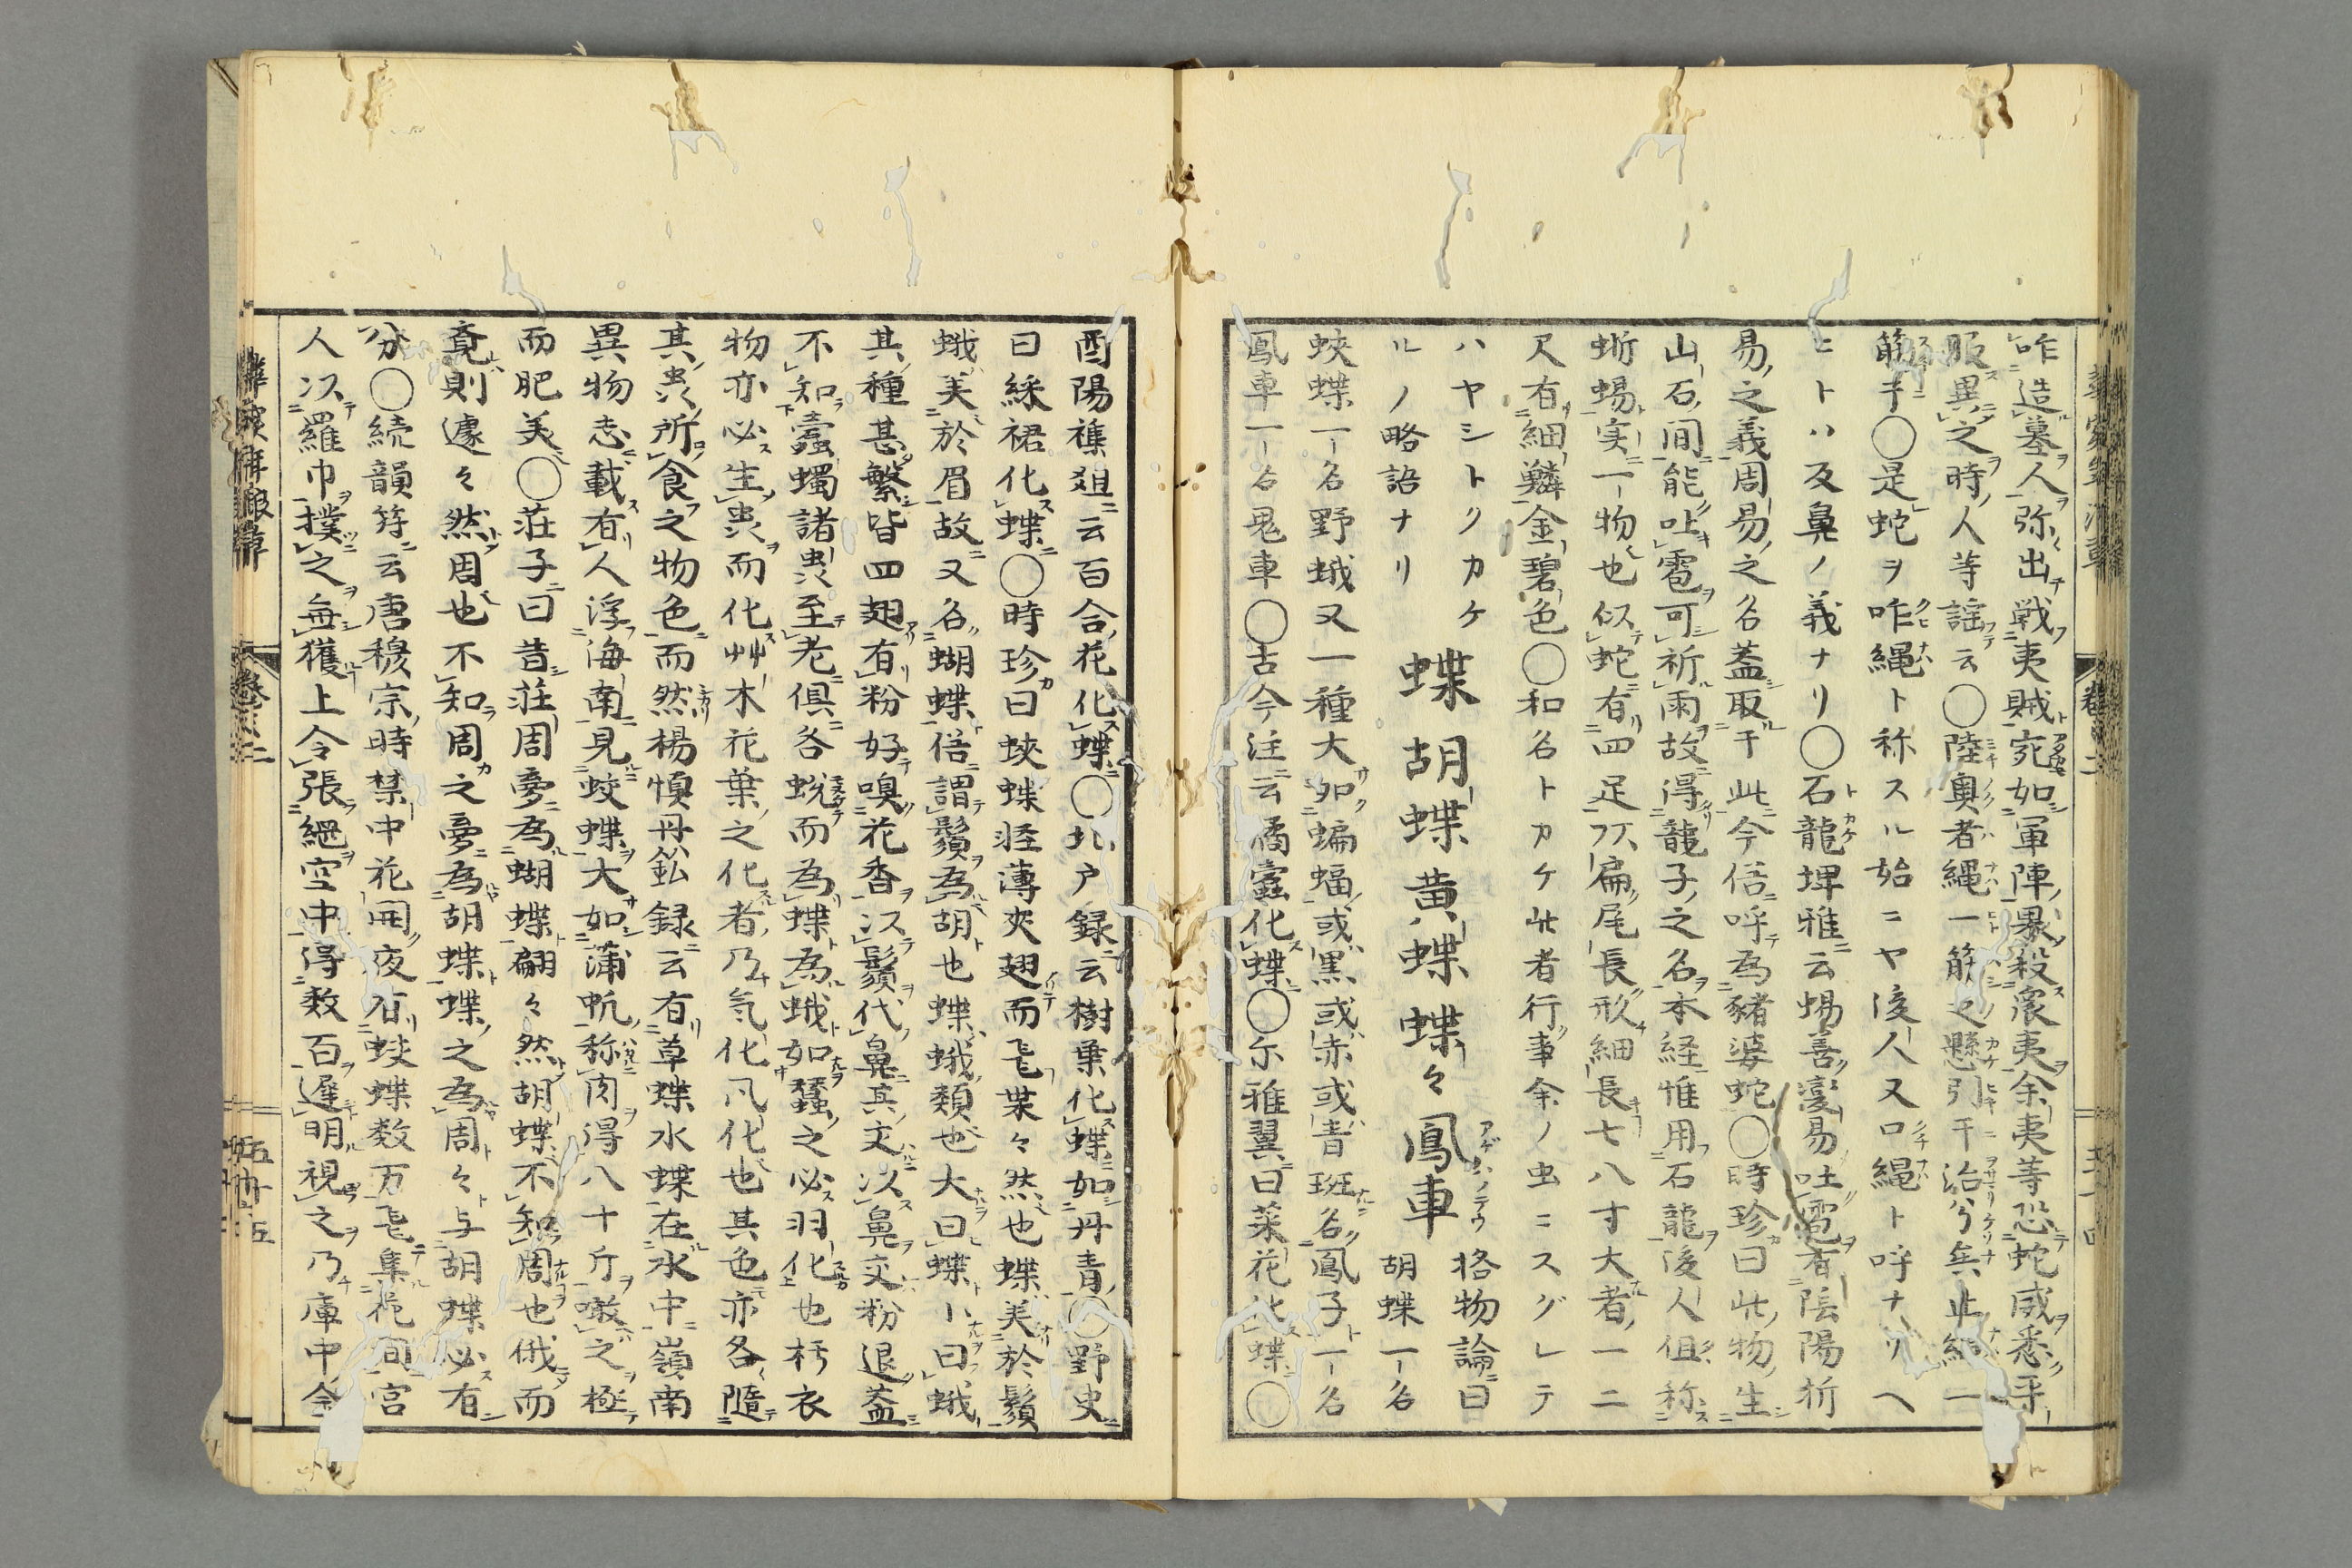 咋造墓人弥出戦夷賊宛如軍陣暴殺衆夷余夷等恐蛇威悉平
服異之時人等謡云〇陸奥者縄一筋之懸引干治兮無止縄一
筋乎〇是蛇ヲ咋縄ト称スル始ニヤ後人又口縄ト呼ナリヘ
ヒトハ反鼻ノ義ナリ〇石龍埤雅云蜴善変易吐雹有陰陽析
易之義周易之名蓋取干此今俗呼為豬婆蛇〇時珍曰此物生
山石間能吐雹可祈雨故得龍子之名本経惟用石龍後人但称
蜥蜴実一物也似蛇有四足頭扁尾長形細長七八寸大者一二
尺有細鱗金碧色〇和名トカケ此者行事余ノ虫ニスグレテ
ハヤシトクカケ
ルノ略語ナリ
蝶 胡蝶 黄蝶 蝶々 鳳車 格物論曰
胡蝶一名
蛺蝶一名野蛾又一種大如蝙蝠或黒或赤或青班名鳳子一名
鳳車一名鬼車〇古今注云橘蠧化蝶〇尓雅翼曰菜花化蝶〇
酉陽襍俎云百合花化蝶〇北户録云樹葉化蝶如丹青〇野史
曰綵裙化蝶〇時珍曰蛺蝶軽薄夾翅而飛枼々然也蝶美於鬚
蛾美於眉故又名蝴蝶俗謂鬚為胡也蝶蛾類也大曰蝶小曰蛾
其種甚繁皆四翅有粉好嗅花香以鬚代鼻其交以鼻交粉退蓋
不知蠧蠋諸虫至老倶各蛻而為蝶為蛾如蚕之必羽化也朽衣
物亦必生虫而化艸木花葉之化者乃気化風化也其色亦各隨
其虫所食之物色而然楊慎丹鉛録云有草蝶水蝶在水中嶺南
異物志載有人浮海南見蛟蝶大如蒲帆称肉得八十斤噉之極
而肥美〇荘子曰昔荘周夢為蝴蝶翩々然胡蝶不知周也俄而
覚則遽々然周也不知周之夢為胡蝶蝶之為周々与胡蝶必有
分〇続韻府云唐穆宗時禁中花開夜有蛺蝶数万飛集花間宮
人以羅巾撲之無獲上令張網空中得数百遲明視之乃庫中金